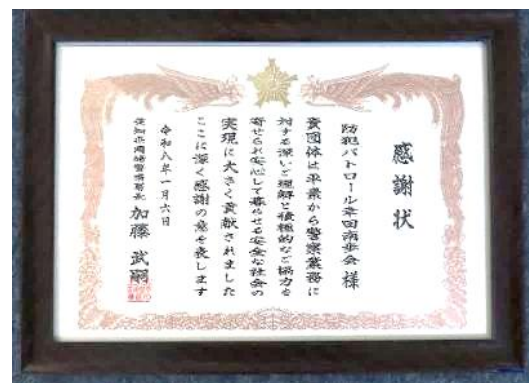 感謝状
防犯パトロール幸田南歩会 様
貴団体は平素から警察業務に
対する深いご理解と積極的なご協力を
寄せられ安心して暮らせる安全な社会の
実現に大きく貢献されました
ここに深く感謝の意を表します
令和八年一月六日
愛知県岡崎警察署長 加藤 武嗣